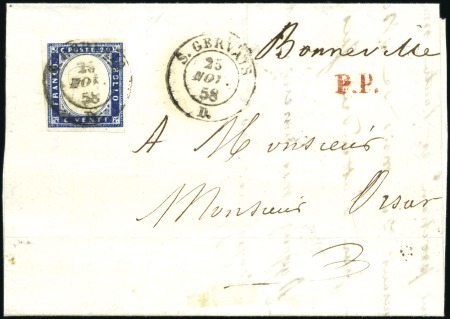 C. POSTE 20
FRANCO
BOLLO
C. VENTI
25
NOV.
58
S. GERVAIS
25
NOV.
58
D.
Bonneville
P.P.
A Monsieur
Monsieur Orsat